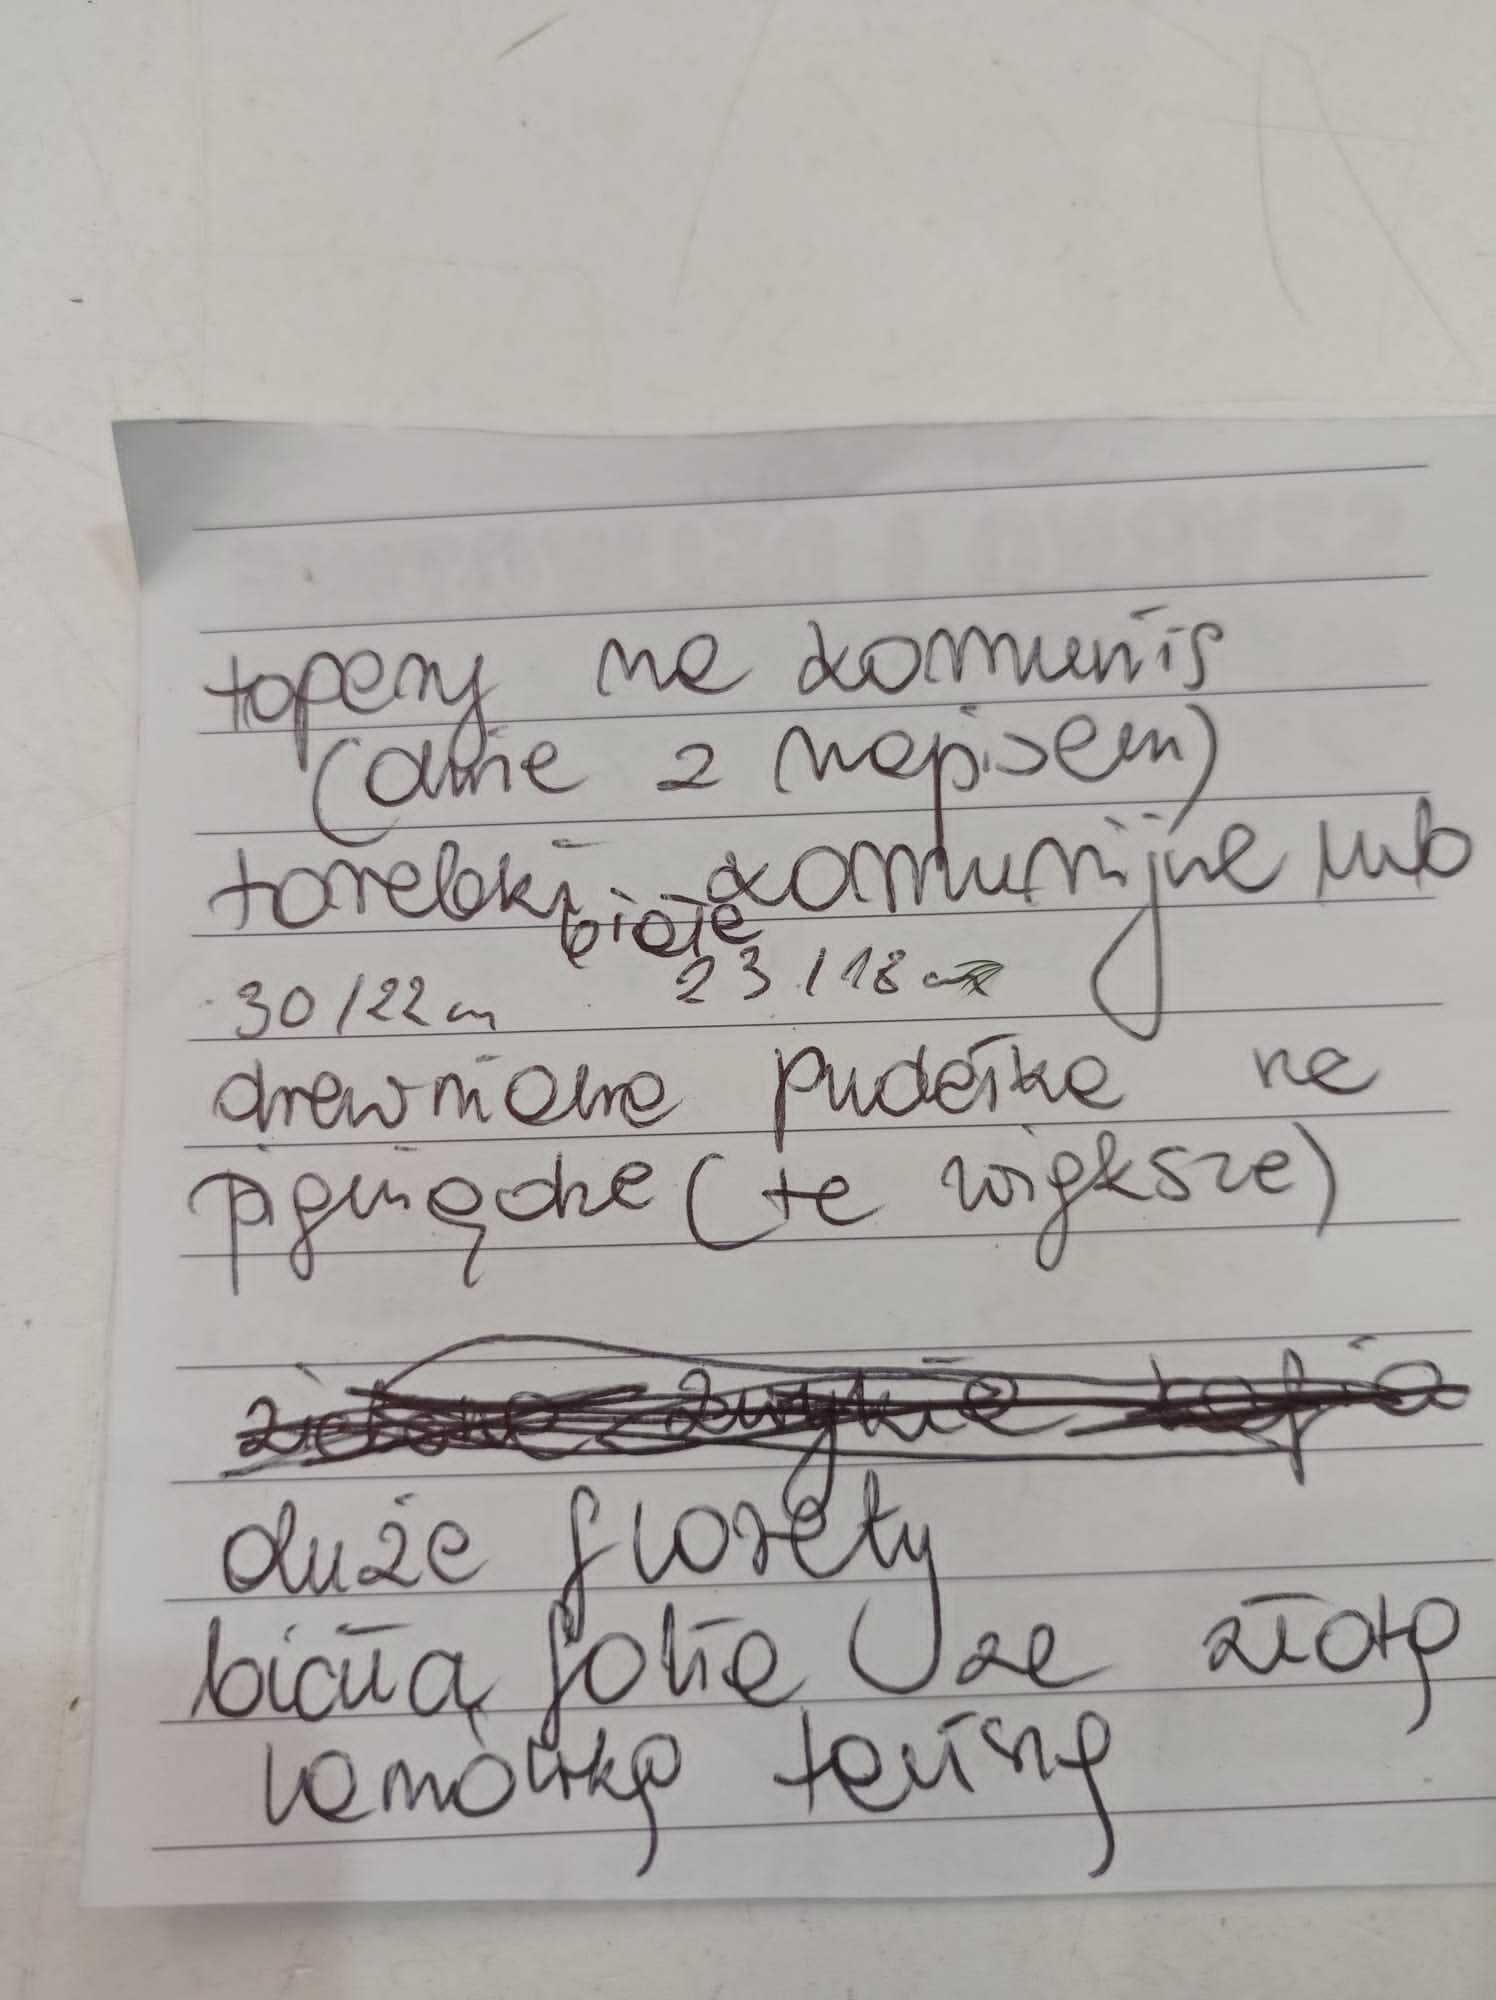 topery na komunię
(duże z napisem)
torebki komunijne lub
białe
30/22 cm 23/18 cm
drewniane pudełka na
pieniądze (te większe)
duże florety
biała folia ze złotą
lamówką taśmą